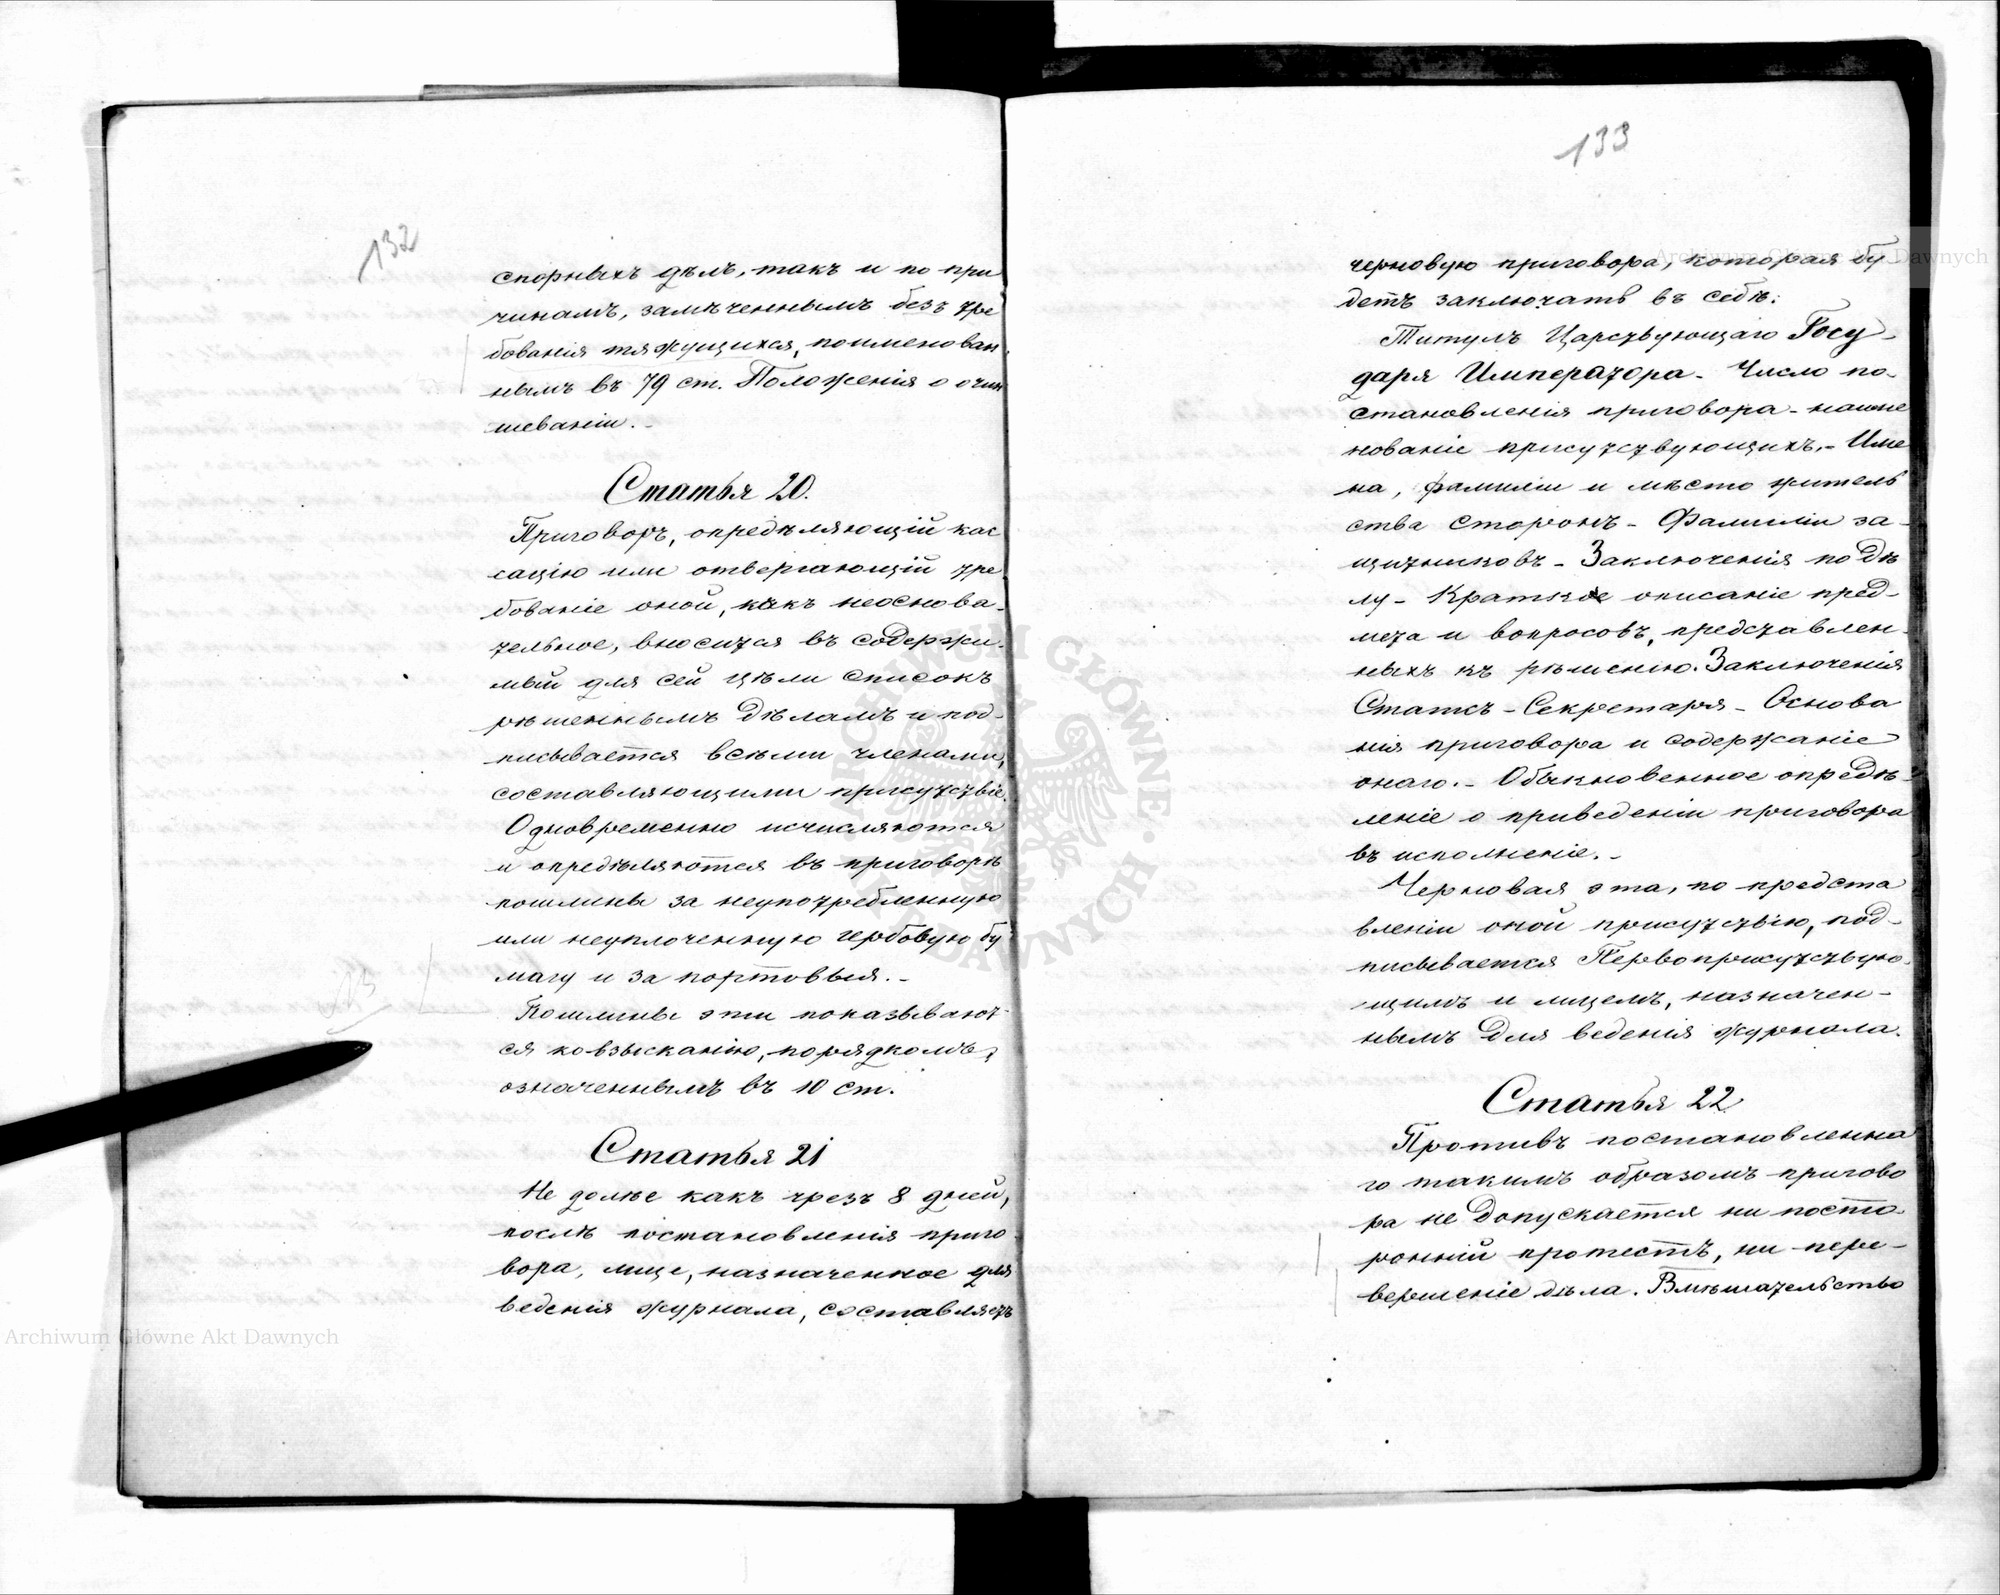 132
спорныхъ дѣлъ, такъ и по при
чинамъ, замѣченнымъ безъ тре
бованія тяжущихся, поименован
нымъ въ 79 ст. Положенія о очин
шеваніи.
Статья 20.
Приговоръ, опредѣляющій кас
сацію или отвергающій тре
бованіе оной, какъ неоснова-
тельное, вносится въ содержи-
мый для сей цѣли списокъ
рѣшеннымъ дѣламъ и под-
писывается всѣми членами,
составляющими присутствіе.
Одновременно исчисляются
и опредѣляются въ приговорѣ
пошлины за неупотребленную
или неуплоченную гербовую бу
магу и за портовыя.-
Пошлины эти показывают-
ся ко взысканію, порядкомъ,
означеннымъ въ 10 ст.
Статья 21
Не долѣе какъ чрезъ 8 дней,
послѣ постановленія приго-
вора, лице, назначенное для
веденія журнала, составляетъ
133
черновую приговора, которая бу
детъ заключать въ себѣ:
Титулъ Царствующаго Госу-
даря Императора - Число по-
становленія приговора - наиме
нованіе присутствующихъ,- Име
на, фамиліи и мѣсто житель
ства сторонъ - Фамиліи за-
щитниковъ - Заключенія по дѣ
лу - Краткое описаніе пред-
мета и вопросовъ, представлен-
ныхъ къ рѣшенію. Заключенія
Статсъ-Секретаря - Основа
нія приговора и содержаніе
онаго.- Обыкновенное опредѣ-
леніе о приведеніи приговора
въ исполненіе.-
Черновая эта, по предста
вленіи оной присутствію, под-
писывается Первоприсутствую-
щимъ и лицемъ, назначен-
нымъ для веденія журнала.
Статья 22
Противъ постановленна
го такимъ образомъ пригово
ра не допускается ни посто-
ронній протестъ, ни пере-
вершеніе дѣла. Вмѣшательство
Archiwum Główne Akt Dawnych
Archiwum Główne Akt Dawnych
ARCHIWUM GŁÓWNE AKT DAWNYCH